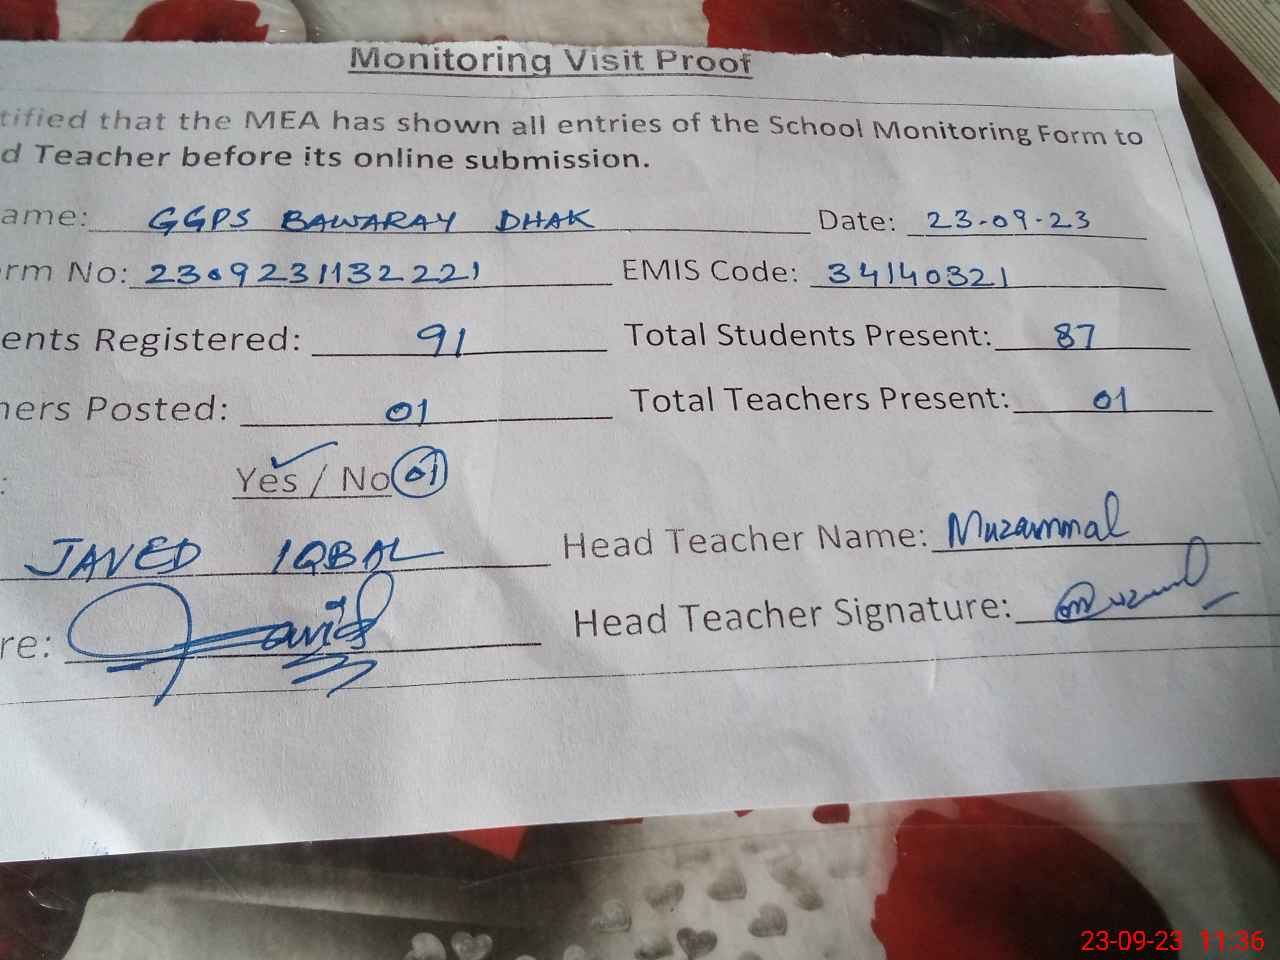 Monitoring Visit Proof
tified that the MEA has shown all entries of the School Monitoring Form to
d Teacher before its online submission.
ame: GGPS BAWARAY DHAK Date: 23-09-23
rm No: 2309231132221 EMIS Code: 34140321
ents Registered: 91 Total Students Present: 87
hers Posted: 01 Total Teachers Present: 01
: Yes / No 01
JAVED IQBAL Head Teacher Name: Muzammal
re: Javid Head Teacher Signature: Muzammal
23-09-23 11:36